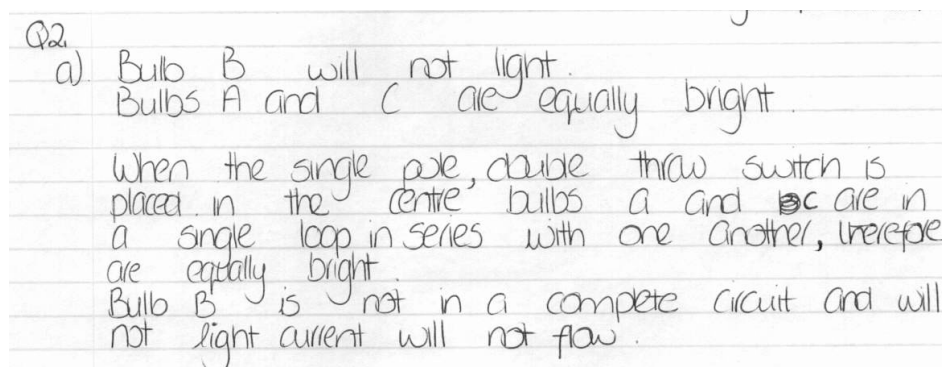 Q2.
a) Bulb B will not light.
Bulbs A and C are equally bright.
When the single pole, double throw switch is
placed in the centre bulbs a and c are in
a single loop in series with one another, therefore
are equally bright.
Bulb B is not in a complete circuit and will
not light current will not flow.